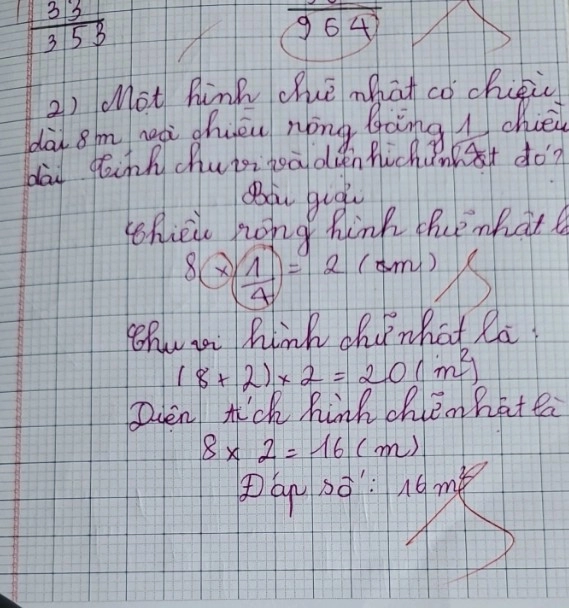 33
353
964
2) Một hình chữ nhật có chiều
dài 8m và chiều rộng bằng 1/4 chiều
dài tính chu vi và diện hích hình đó?
Bài giải
Chiều rộng hình chữ nhật
8 × 1/4 = 2 (m)
Chu vi hình chữ nhật là:
(8 + 2) × 2 = 20 (m²)
Diện tích hình chữ nhật là
8 × 2 = 16 (m)
Đáp số: 16 m²